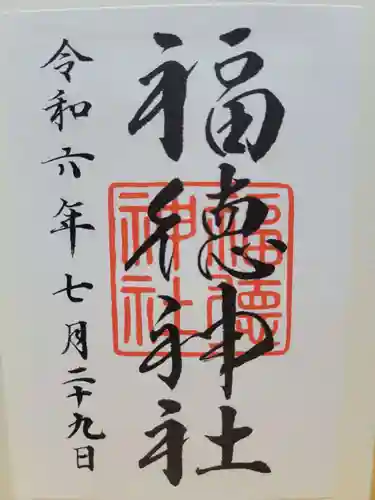 福徳神社
福徳神社
令和六年七月二十九日